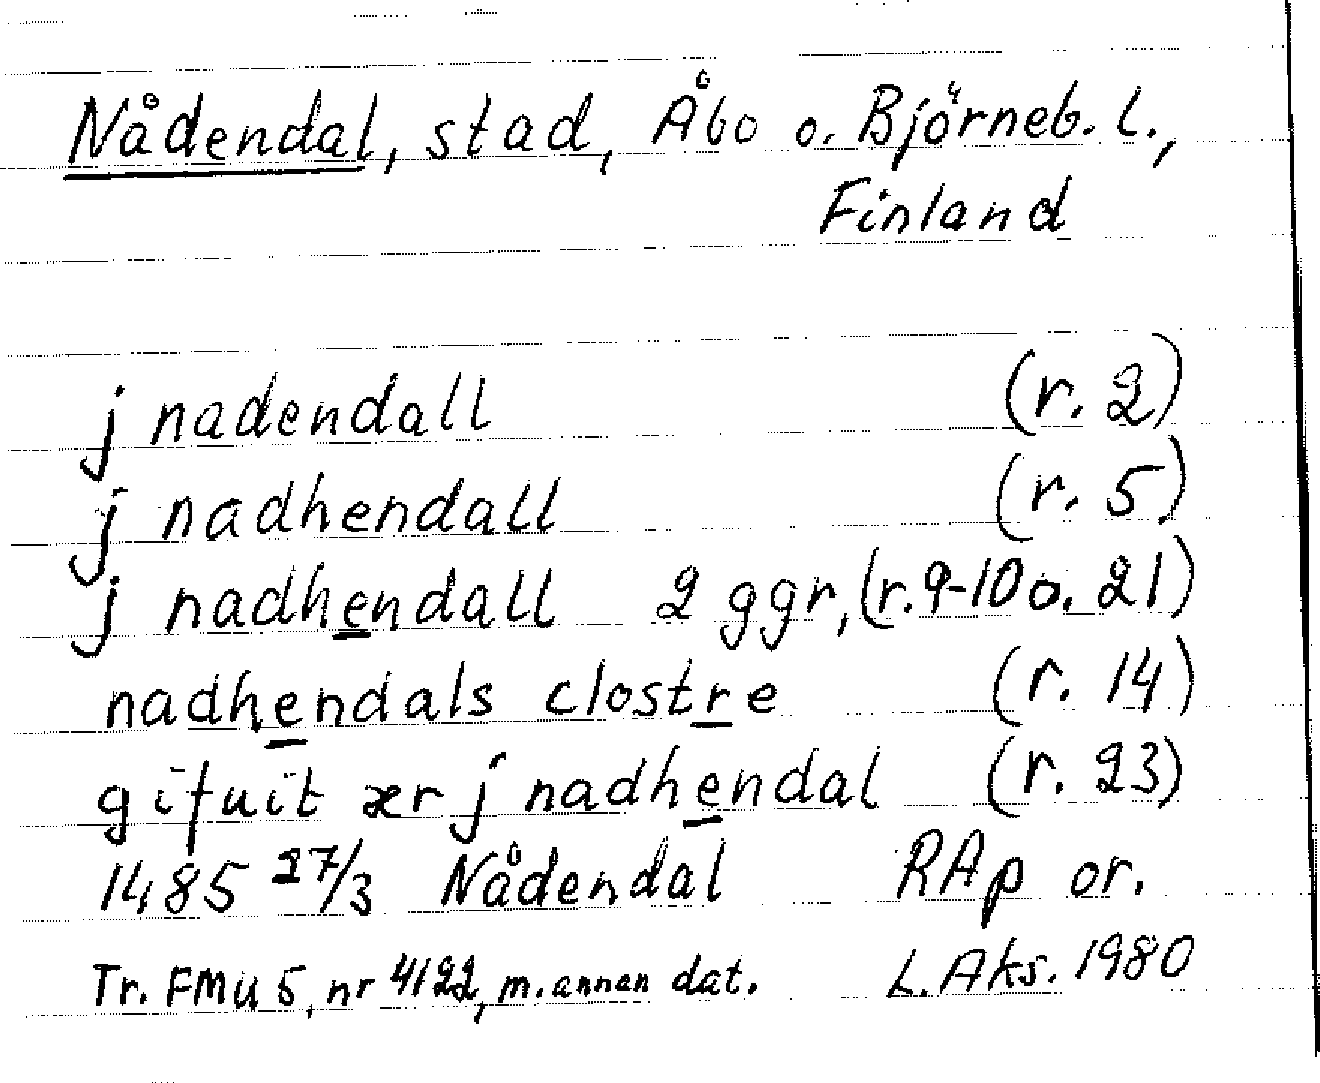 Nådendal, stad, Åbo o. Björneb. l.,
Finland
j nadendall (r. 2)
j nadhendall (r. 5)
j nadhendall 2 ggr, (r. 9-10 o. 21)
nadhendals clostre (r. 14)
gifuit ær j nadhendal (r. 23)
1485 27/3 Nådendal RAp or.
Tr. FMU 5, nr 4122, m. annan dat. L. Aks. 1980